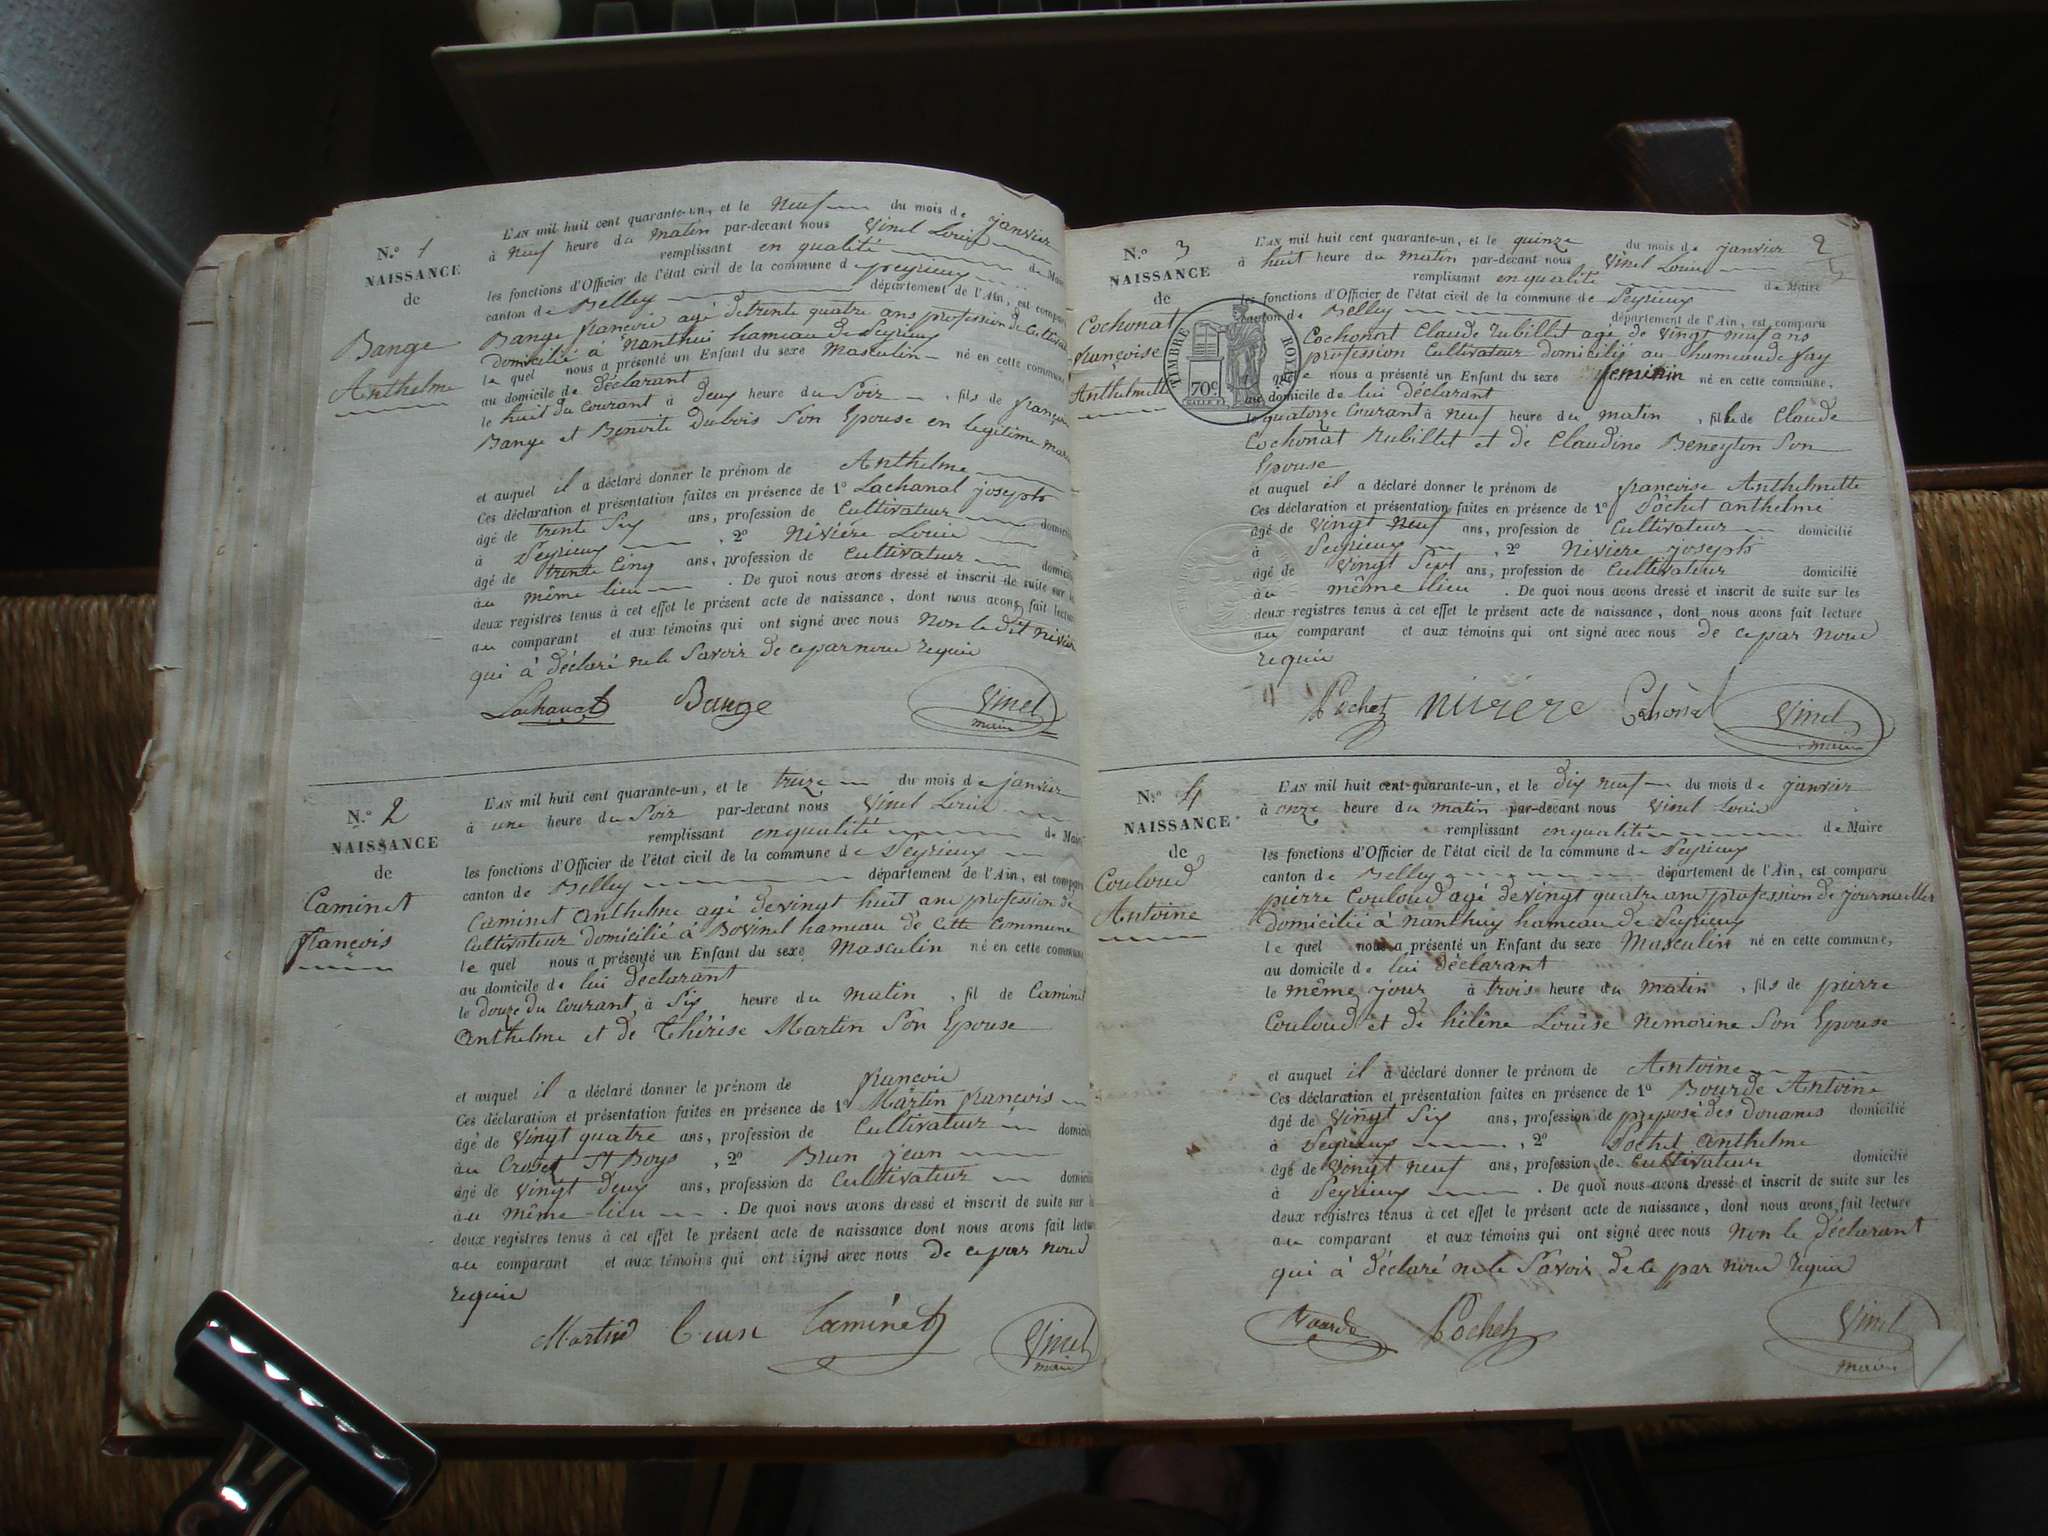 N.º 1
NAISSANCE
de
Bange
Anthelme
L'AN mil huit cent quarante-un, et le neuf du mois de janvier
à neuf heure du matin par-devant nous Vinel Louis
remplissant en qualité de Maire
les fonctions d'Officier de l'état civil de la commune de Peyrieux
canton de Belley département de l'Ain, est comparu
Bange françois agé de trente quatre ans profession de Cultivateur
domicilié à Nanthui hameau de Peyrieux
le quel nous a présenté un Enfant du sexe Masculin né en cette commune
au domicile de déclarant
le huit du Courant à deux heure du Soir, fils de françois
Bange et Benoite Dubois Son Epouse en legitime
et auquel il a déclaré donner le prénom de Anthelme
Ces déclaration et présentation faites en présence de 1º Lachanal joseph
âgé de trente Six ans, profession de Cultivateur domicilié
à Peyrieux, 2º Nivière Louis
âgé de trente Cinq ans, profession de Cultivateur domicilié
au même lieu. De quoi nous avons dressé et inscrit de suite sur les
deux registres tenus à cet effet le présent acte de naissance, dont nous avons fait lecture
au comparant et aux témoins qui ont signé avec nous Non le dit nivière
qui à déclaré ne le Savoir de ce par nous requis
Lachanal Bange Vinel
maire
N.º 2
NAISSANCE
de
Caminet
françois
L'AN mil huit cent quarante-un, et le treize du mois de janvier
à une heure du Soir par-devant nous Vinel Louis
remplissant en qualité de Maire
les fonctions d'Officier de l'état civil de la commune de Peyrieux
canton de Belley département de l'Ain, est comparu
Caminet Anthelme agé de vingt huit ans profession de
Cultivateur domicilié à Bovinel hameau de Cette Commune
le quel nous a présenté un Enfant du sexe Masculin né en cette commune
au domicile de lui déclarant
le douze du Courant à Six heure du matin, fil de Caminet
Anthelme et de Thérèse Martin Son Epouse
et auquel il a déclaré donner le prénom de françois
Ces déclaration et présentation faites en présence de 1º Martin françois
âgé de Vingt quatre ans, profession de Cultivateur domicilié
au Croset St Boys, 2º Brun jean
âgé de Vingt deux ans, profession de Cultivateur domicilié
au même lieu. De quoi nous avons dressé et inscrit de suite sur les
deux registres tenus à cet effet le présent acte de naissance dont nous avons fait lecture
au comparant et aux témoins qui ont signé avec nous de ce par nous
requis
Martin Brun Caminet Vinel
maire
2
N.º 3
NAISSANCE
de
Cochonat
françoise
Anthelmette
TIMBRE ROYAL
70c
L'AN mil huit cent quarante-un, et le quinze du mois de janvier
à huit heure du matin par-devant nous Vinel Louis
remplissant en qualité de Maire
les fonctions d'Officier de l'état civil de la commune de Peyrieux
canton de Belley département de l'Ain, est comparu
Cochonat Claude Rubillet agé de vingt neuf ans
profession Cultivateur domicilié au hameau de fay
le quel nous a présenté un Enfant du sexe feminin né en cette commune,
au domicile de lui déclarant
le quatorze Courant à neuf heure du matin, fille de Claude
Cochonat Rubillet et de Claudine Beneyton Son
Epouse
et auquel il a déclaré donner le prénom de françoise Anthelmette
Ces déclaration et présentation faites en présence de 1º Pochet anthelme
âgé de Vingt neuf ans, profession de Cultivateur domicilié
à Peyrieux, 2º Nivière joseph
âgé de Vingt Sept ans, profession de Cultivateur domicilié
au même lieu. De quoi nous avons dressé et inscrit de suite sur les
deux registres tenus à cet effet le présent acte de naissance, dont nous avons fait lecture
au comparant et aux témoins qui ont signé avec nous de ce par nous
requis
Pochet Nivière Cochonat Vinel
maire
N.º 4
NAISSANCE
de
Couloud
Antoine
L'AN mil huit cent quarante-un, et le dix neuf du mois de janvier
à onze heure du matin par-devant nous Vinel Louis
remplissant en qualité de Maire
les fonctions d'Officier de l'état civil de la commune de Peyrieux
canton de Belley département de l'Ain, est comparu
pierre Couloud agé de vingt quatre ans profession de journallier
domicilié à Nanthuy hameau de Peyrieux
le quel nous a présenté un Enfant du sexe Masculin né en cette commune,
au domicile de lui déclarant
le même jour à trois heure du matin, fils de pierre
Couloud et de hélène Louise Nemorine Son Epouse
et auquel il a déclaré donner le prénom de Antoine
Ces déclaration et présentation faites en présence de 1º Bourde Antoine
âgé de Vingt Six ans, profession de préposé des douanes domicilié
à Peyrieux, 2º Pochet Anthelme
âgé de Vingt neuf ans, profession de Cultivateur domicilié
à Peyrieux. De quoi nous avons dressé et inscrit de suite sur les
deux registres tenus à cet effet le présent acte de naissance, dont nous avons fait lecture
au comparant et aux témoins qui ont signé avec nous Non le déclarant
qui à déclaré ne le Savoir de ce par nous requis
Bourde Pochet Vinel
maire